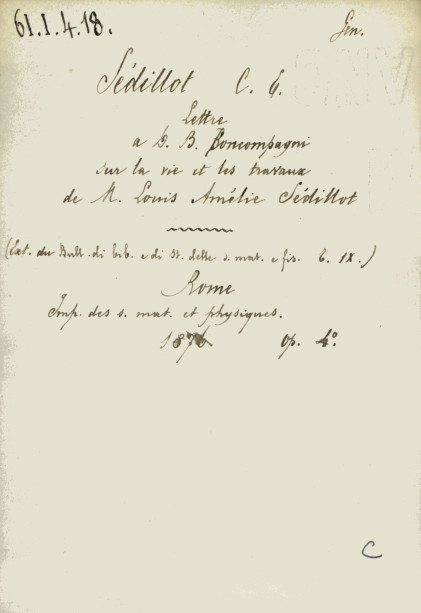 61.I.4.18.
Gen.
Sédillot C. E.
Lettre
a D. B. Boncompagni
sur la vie et les travaux
de M. Louis Amélie Sédillot
(Ext. du Bull. di bib. e di St. delle s. mat. e fis. t. IX.)
Rome
Imp. des s. mat. et physiques.
1876 op. 4°.
C